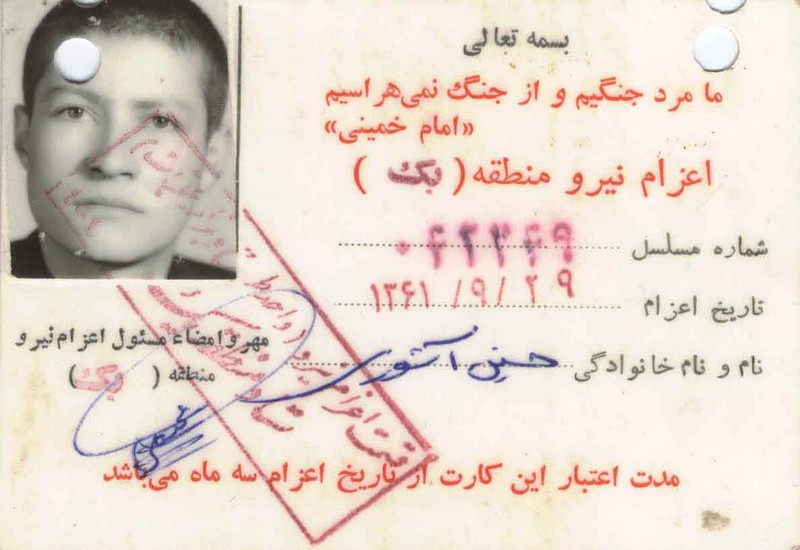 بسمه تعالی
ما مرد جنگیم و از جنگ نمی‌هراسیم
«امام خمینی»
اعزام نیرو منطقه ( یک )
شماره مسلسل
تاریخ اعزام ۱۳۶۱/۹/۲۹
نام و نام خانوادگی حسین آشوری
مهر و امضاء مسئول اعزام نیرو
منطقه ( یک )
مدت اعتبار این کارت از تاریخ اعزام سه ماه می‌باشد